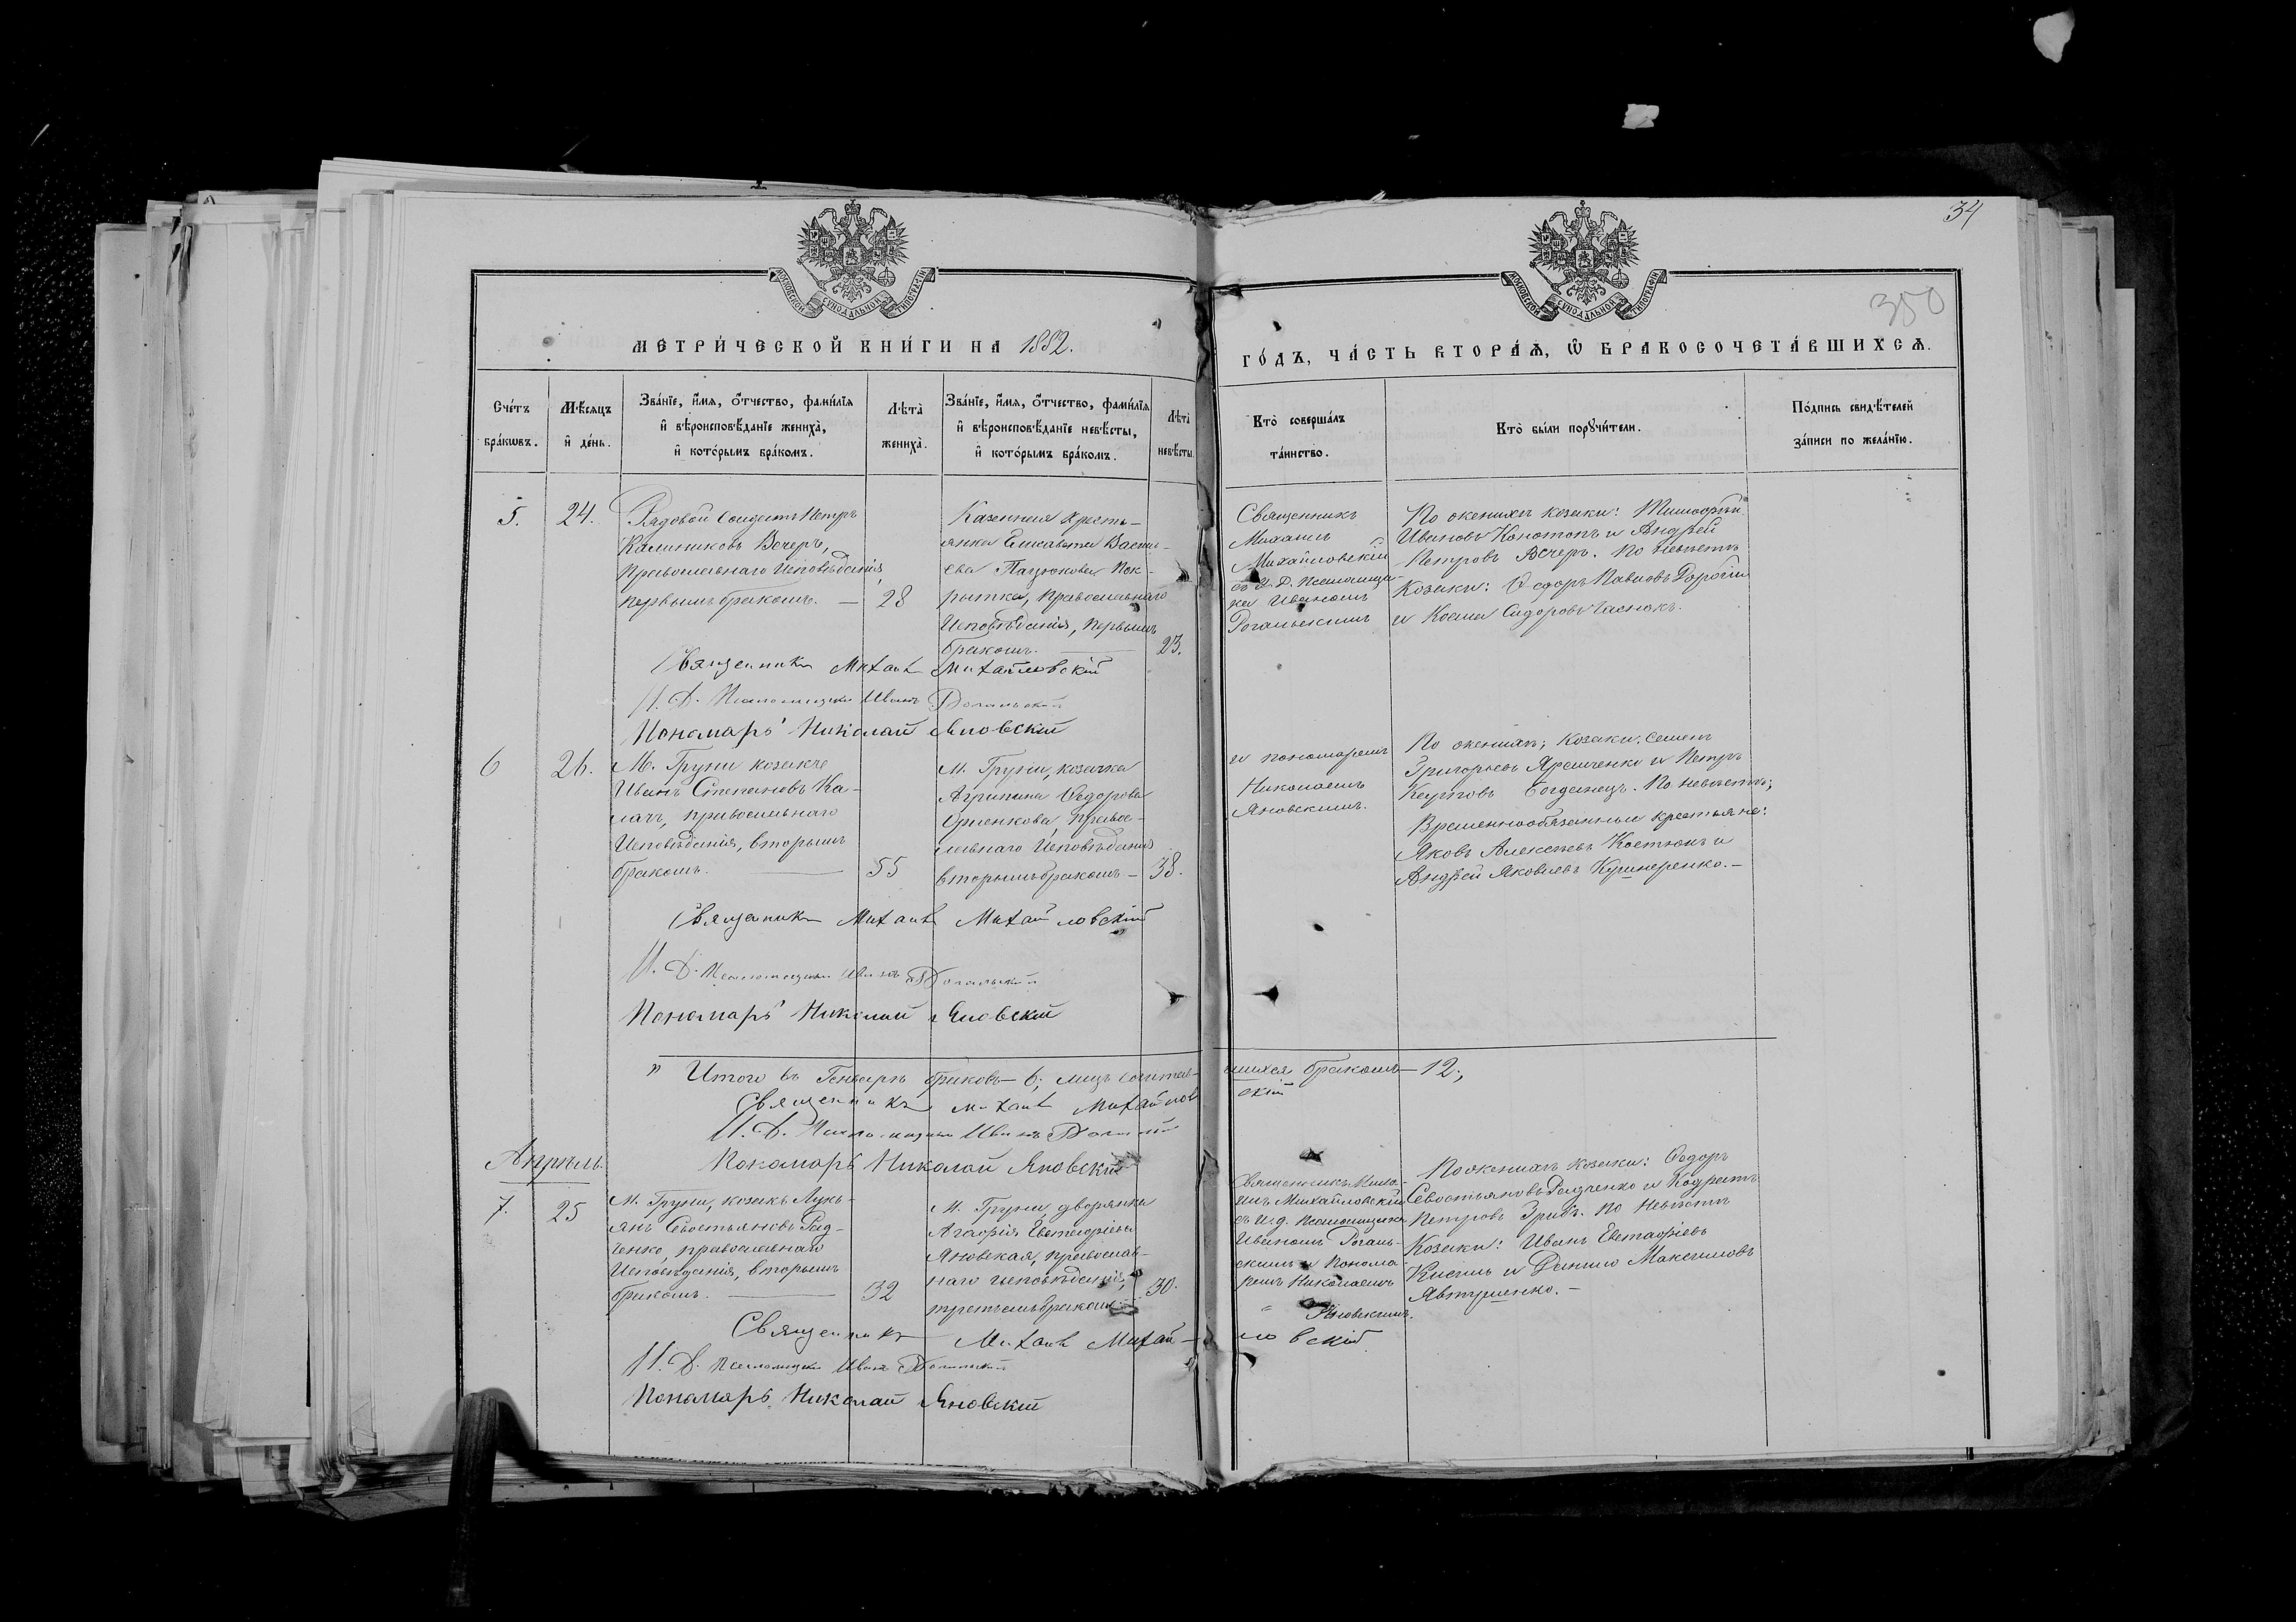 34
350
МОСКОВСКОЙ СѴНОДАЛЬНОЙ ТИПОГРАФІИ
МОСКОВСКОЙ СѴНОДАЛЬНОЙ ТИПОГРАФІИ
МЕТРИ́ЧЕСКОЙ КНИ́ГИ НА 1882.
ГО́ДЪ, ЧА́СТЬ ВТОРА́Ѧ, Ѽ БРАКОСОЧЕТА́ВШИХСѦ.
Сче́тъ бра́кѡвъ.
Мѣ́сяцъ и҆ де́нь.
Зва́нїе, и҆́мя, ѻ҆́тчество, фами́лїя
и҆ вѣроисповѣ́данїе жениха̀,
и҆ кото́рымъ бра́комъ.
Лѣта̀ жениха̀.
Зва́нїе, и҆́мя, ѻ҆́тчество, фами́лїя
и҆ вѣроисповѣ́данїе невѣ́сты,
и҆ кото́рымъ бра́комъ.
Лѣта̀ невѣ́сты.
Кто̀ соверша́лъ та́инство.
Кто̀ бы́ли порꙋчи́тели.
По́дпись свидѣ́телей
за́писи по жела́нїю.
5.
24.
Рядовой Солдатъ Петръ
Калиниковъ Вечеръ,
Православнаго Исповѣданія,
первымъ бракомъ. —
28
Казенная кресть-
янка Елисавета Васи
ева Пацюкова Пок-
рытка, Православнаго
Исповѣданія, первымъ
бракомъ.
23.
Священникъ
Михаилъ
Михайловскій
съ И. Д. Псаломщи-
ка Иваномъ
Рогальскимъ
По женихѣ козаки: Тимофей
Ивановъ Конотопъ и Андрей
Петровъ Вечеръ. По невѣстѣ
Козаки: Ѳедоръ Павловъ Дорогій
и Косма Сидоровъ
Священникъ Михаилъ Михайловскій
И. Д. Псаломщика Иванъ Рогальскій
Пономарь Николай Яновскій
6
26.
М. Груни козакъ
Иванъ Степановъ Ка-
лачъ, православнаго
Исповѣданія, вторымъ
бракомъ.
55
М. Груни, козачка
Агрипина Ѳедорова
правос-
лавнаго Исповѣданія
вторымъ бракомъ —
38.
и пономаремъ
Николаемъ
Яновскимъ.
По женихѣ; козаки: Семенъ
Григорьевъ Яременко и Петръ
Карповъ Богданецъ. По невѣстѣ;
Временнообязанные крестьяне:
Яковъ Алексѣевъ Костюкъ и
Андрей Яковлевъ Кушнеренко. —
Священникъ Михаилъ Михайловскій
И. Д. Псаломщика Иванъ Рогальскій
Пономарь Николай Яновскій
" Итого въ Генварѣ браковъ — 6; лицъ сочетав-
шихся бракомъ — 12;
Священникъ Михаилъ Михайловскій
И. Д. Псаломщика Иванъ Рогальскій
Пономарь Николай Яновскій
Апрѣль.
7.
25
М. Груни, козакъ Лукь-
янъ Севостьяновъ Рад-
ченко, православнаго
Исповѣданія, вторымъ
бракомъ.
32
М. Груни, дворянка
Агафія Евстафіева
Яновская, православ-
наго исповѣданія,
третьимъ бракомъ
30.
Священникъ Миха-
илъ Михайловскій
съ И. д. Псаломщика
Иваномъ Рогаль-
скимъ и Понома
ремъ Николаемъ
Яновскимъ.
По женихѣ козаки: Ѳедоръ
Севостьяновъ Радченко и Кодратъ
Петровъ Грибъ. По невѣстѣ
Козаки: Иванъ Евстафіевъ
Кисѣль и Данило Максимовъ
Автушенко. —
Священникъ Михаилъ Михайловскій
И. Д. Псаломщика Иванъ Рогальскій
Пономарь Николай Яновскій